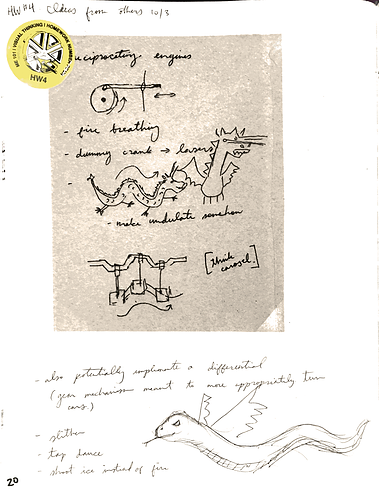 HW#4 Ideas from others 10/3
ME 101 | VISUAL THINKING | HOMEWORK
HW4
reciprocating engines
- fire breathing
- dummy crank → lasers
-
- make undulate somehow
[think carosel.]
- also potentially implimente a differential
(gear mechanism meant to more appropriately turn
cars.)
- slither
- tap dance
- shoot ice instead of fire
20